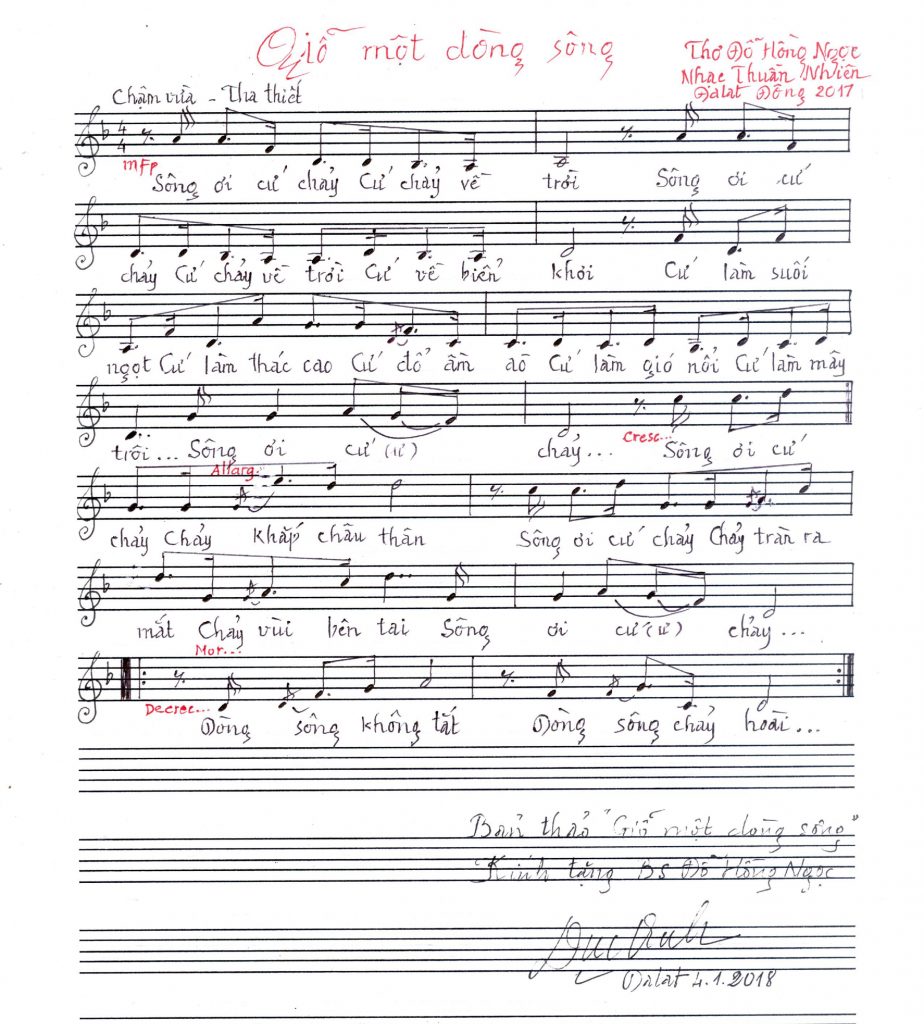 Giỗ một dòng sông
Thơ Đỗ Hồng Ngọc
Nhạc Thuần Nhiên
Đalat Đông 2017
Chậm vừa - Tha thiết
4
4
mFp
Sông ơi cứ chảy Cứ chảy về trời Sông ơi cứ
chảy Cứ chảy về trời Cứ về biển khơi Cứ làm suối
ngọt Cứ làm thác cao Cứ đổ ầm ào Cứ làm gió nổi Cứ làm mây
trôi... Sông ơi cứ (ư) chảy... Sông ơi cứ
Cresc...
Allarg.
chảy Chảy khắp châu thân Sông ơi cứ chảy Chảy tràn ra
mắt Chảy vùi bên tai Sông ơi cứ (ư) chảy...
Mor...
Decresc...
Dòng sông không tắt Dòng sông chảy hoài...
Bản thảo "Giỗ một dòng sông"
Kính tặng Bs Đỗ Hồng Ngọc
Đalat 4.1.2018